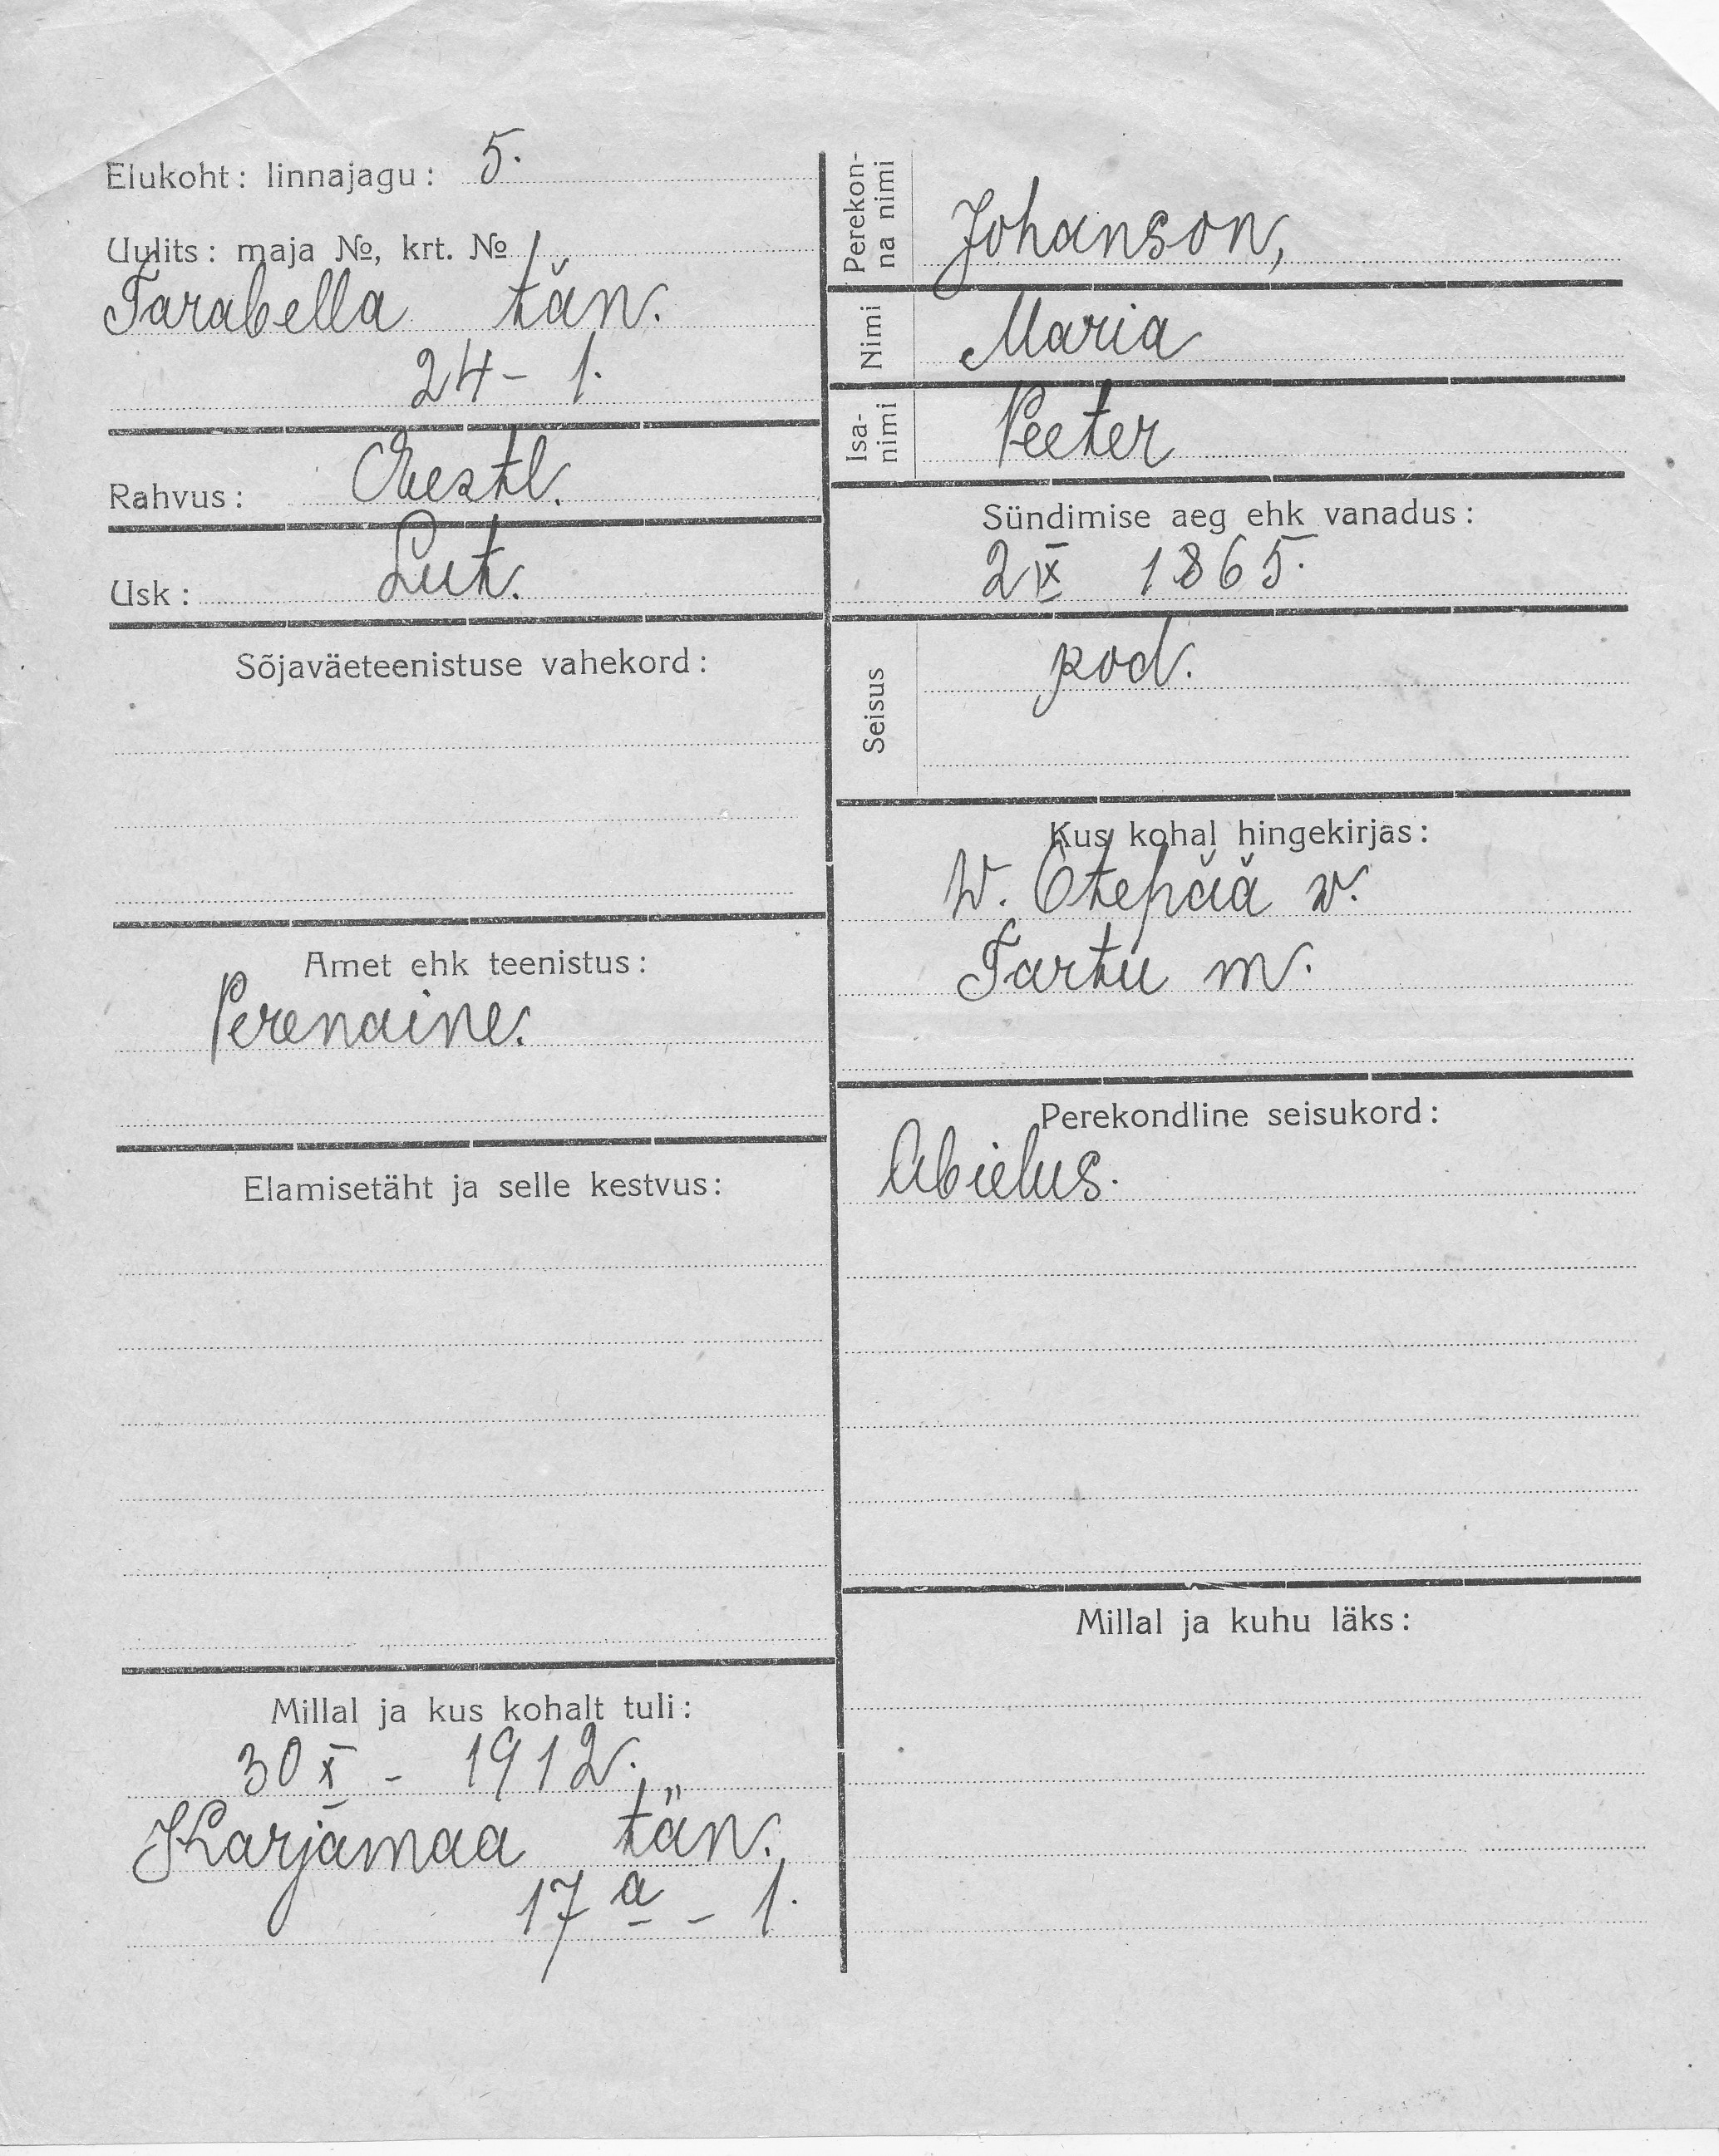 Elukoht: linnajagu: 5.
Uulits: maja №, krt. №
Tarabella tän.
24 - 1.
Rahvus: Eestl.
Usk: Lut.
Sõjaväeteenistuse vahekord:
Amet ehk teenistus:
Perenaine.
Elamisetäht ja selle kestvus:
Millal ja kus kohalt tuli:
30 X - 1912.
Karjamaa tän.
17 a - 1.
Perekonna nimi Johanson,
Nimi Maria
Isanimi Peeter
Sündimise aeg ehk vanadus:
2 IX 1865.
Seisus kod.
Kus kohal hingekirjas:
W. Otepää w.
Tartu m.
Perekondline seisukord:
Abielus.
Millal ja kuhu läks: